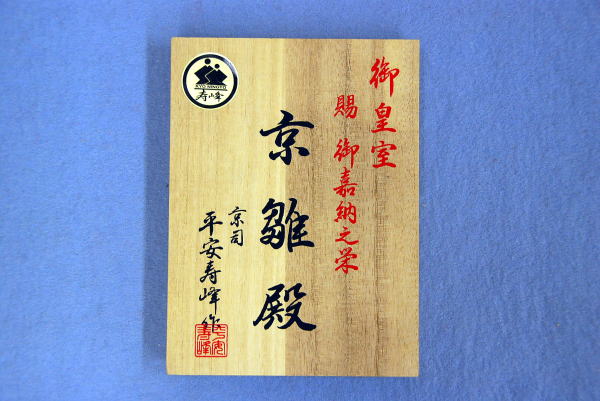 御皇室
賜 御嘉納之栄
京雛殿
京司
平安寿峰作
寿峰